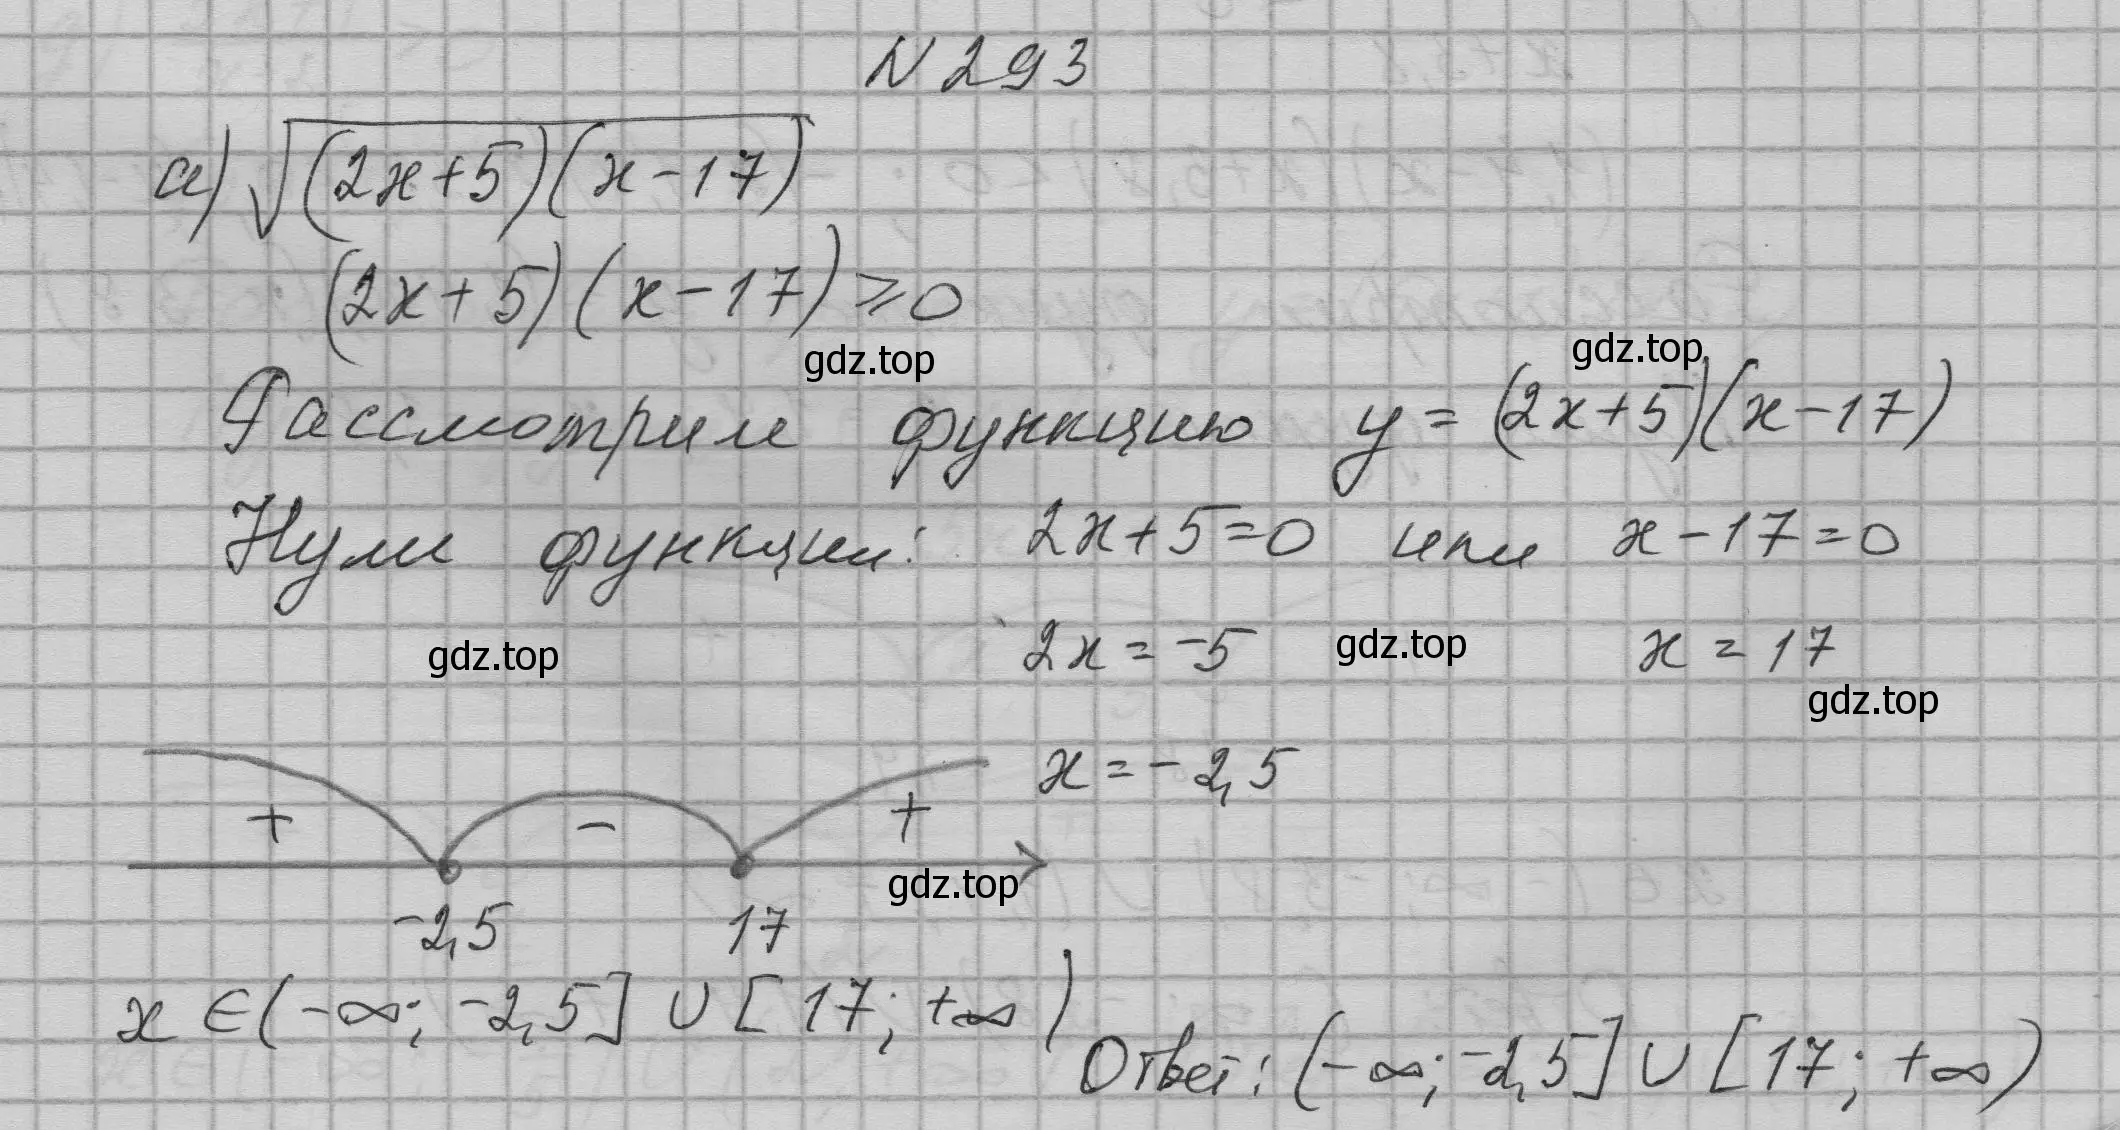 N 293
а) √(2x+5)(x-17)
(2x+5)(x-17)⩾0
gdz.top
gdz.top
Рассмотрим функцию y=(2x+5)(x-17)
Нули функции: 2x+5=0 или x-17=0
gdz.top
2x=-5
gdz.top
x=17
gdz.top
x=-2,5
+ - +
gdz.top
-2,5 17
x∈(-∞;-2,5]∪[17;+∞)
Ответ: (-∞;-2,5]∪[17;+∞)